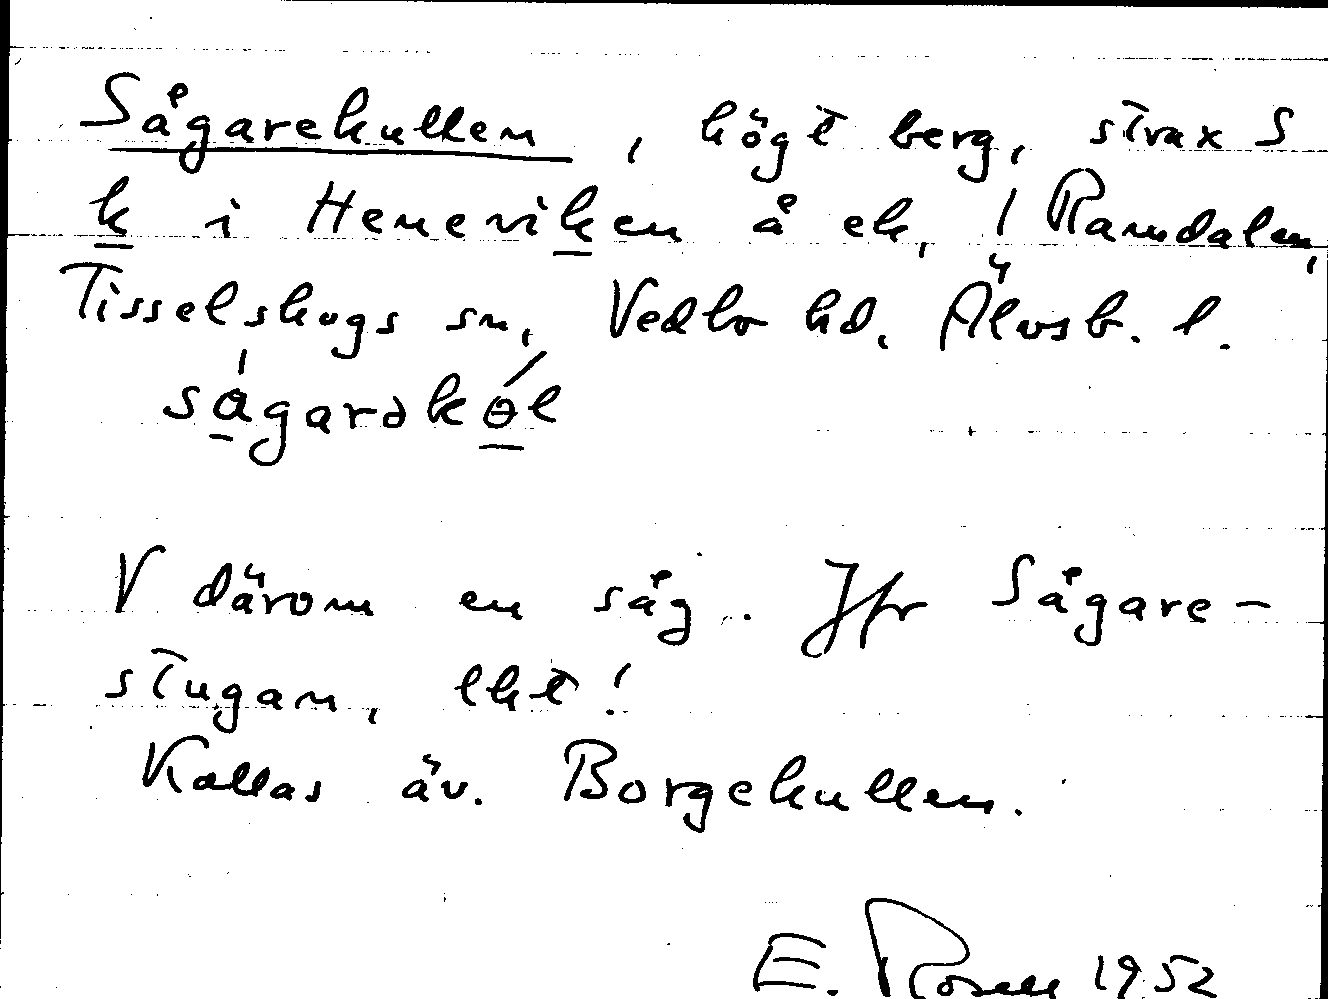 Sågarekullen, högt berg, strax S
k i Heneviken å ek, 1 Ramdalen,
Tisselskogs sn, Vedbo hd, Älvsb. l.
sågarəkɵ́l
V därom en såg. Jfr Sågare-
stugan, ekt!
Kallas äv. Borgekullen.
E. Rosell 1952